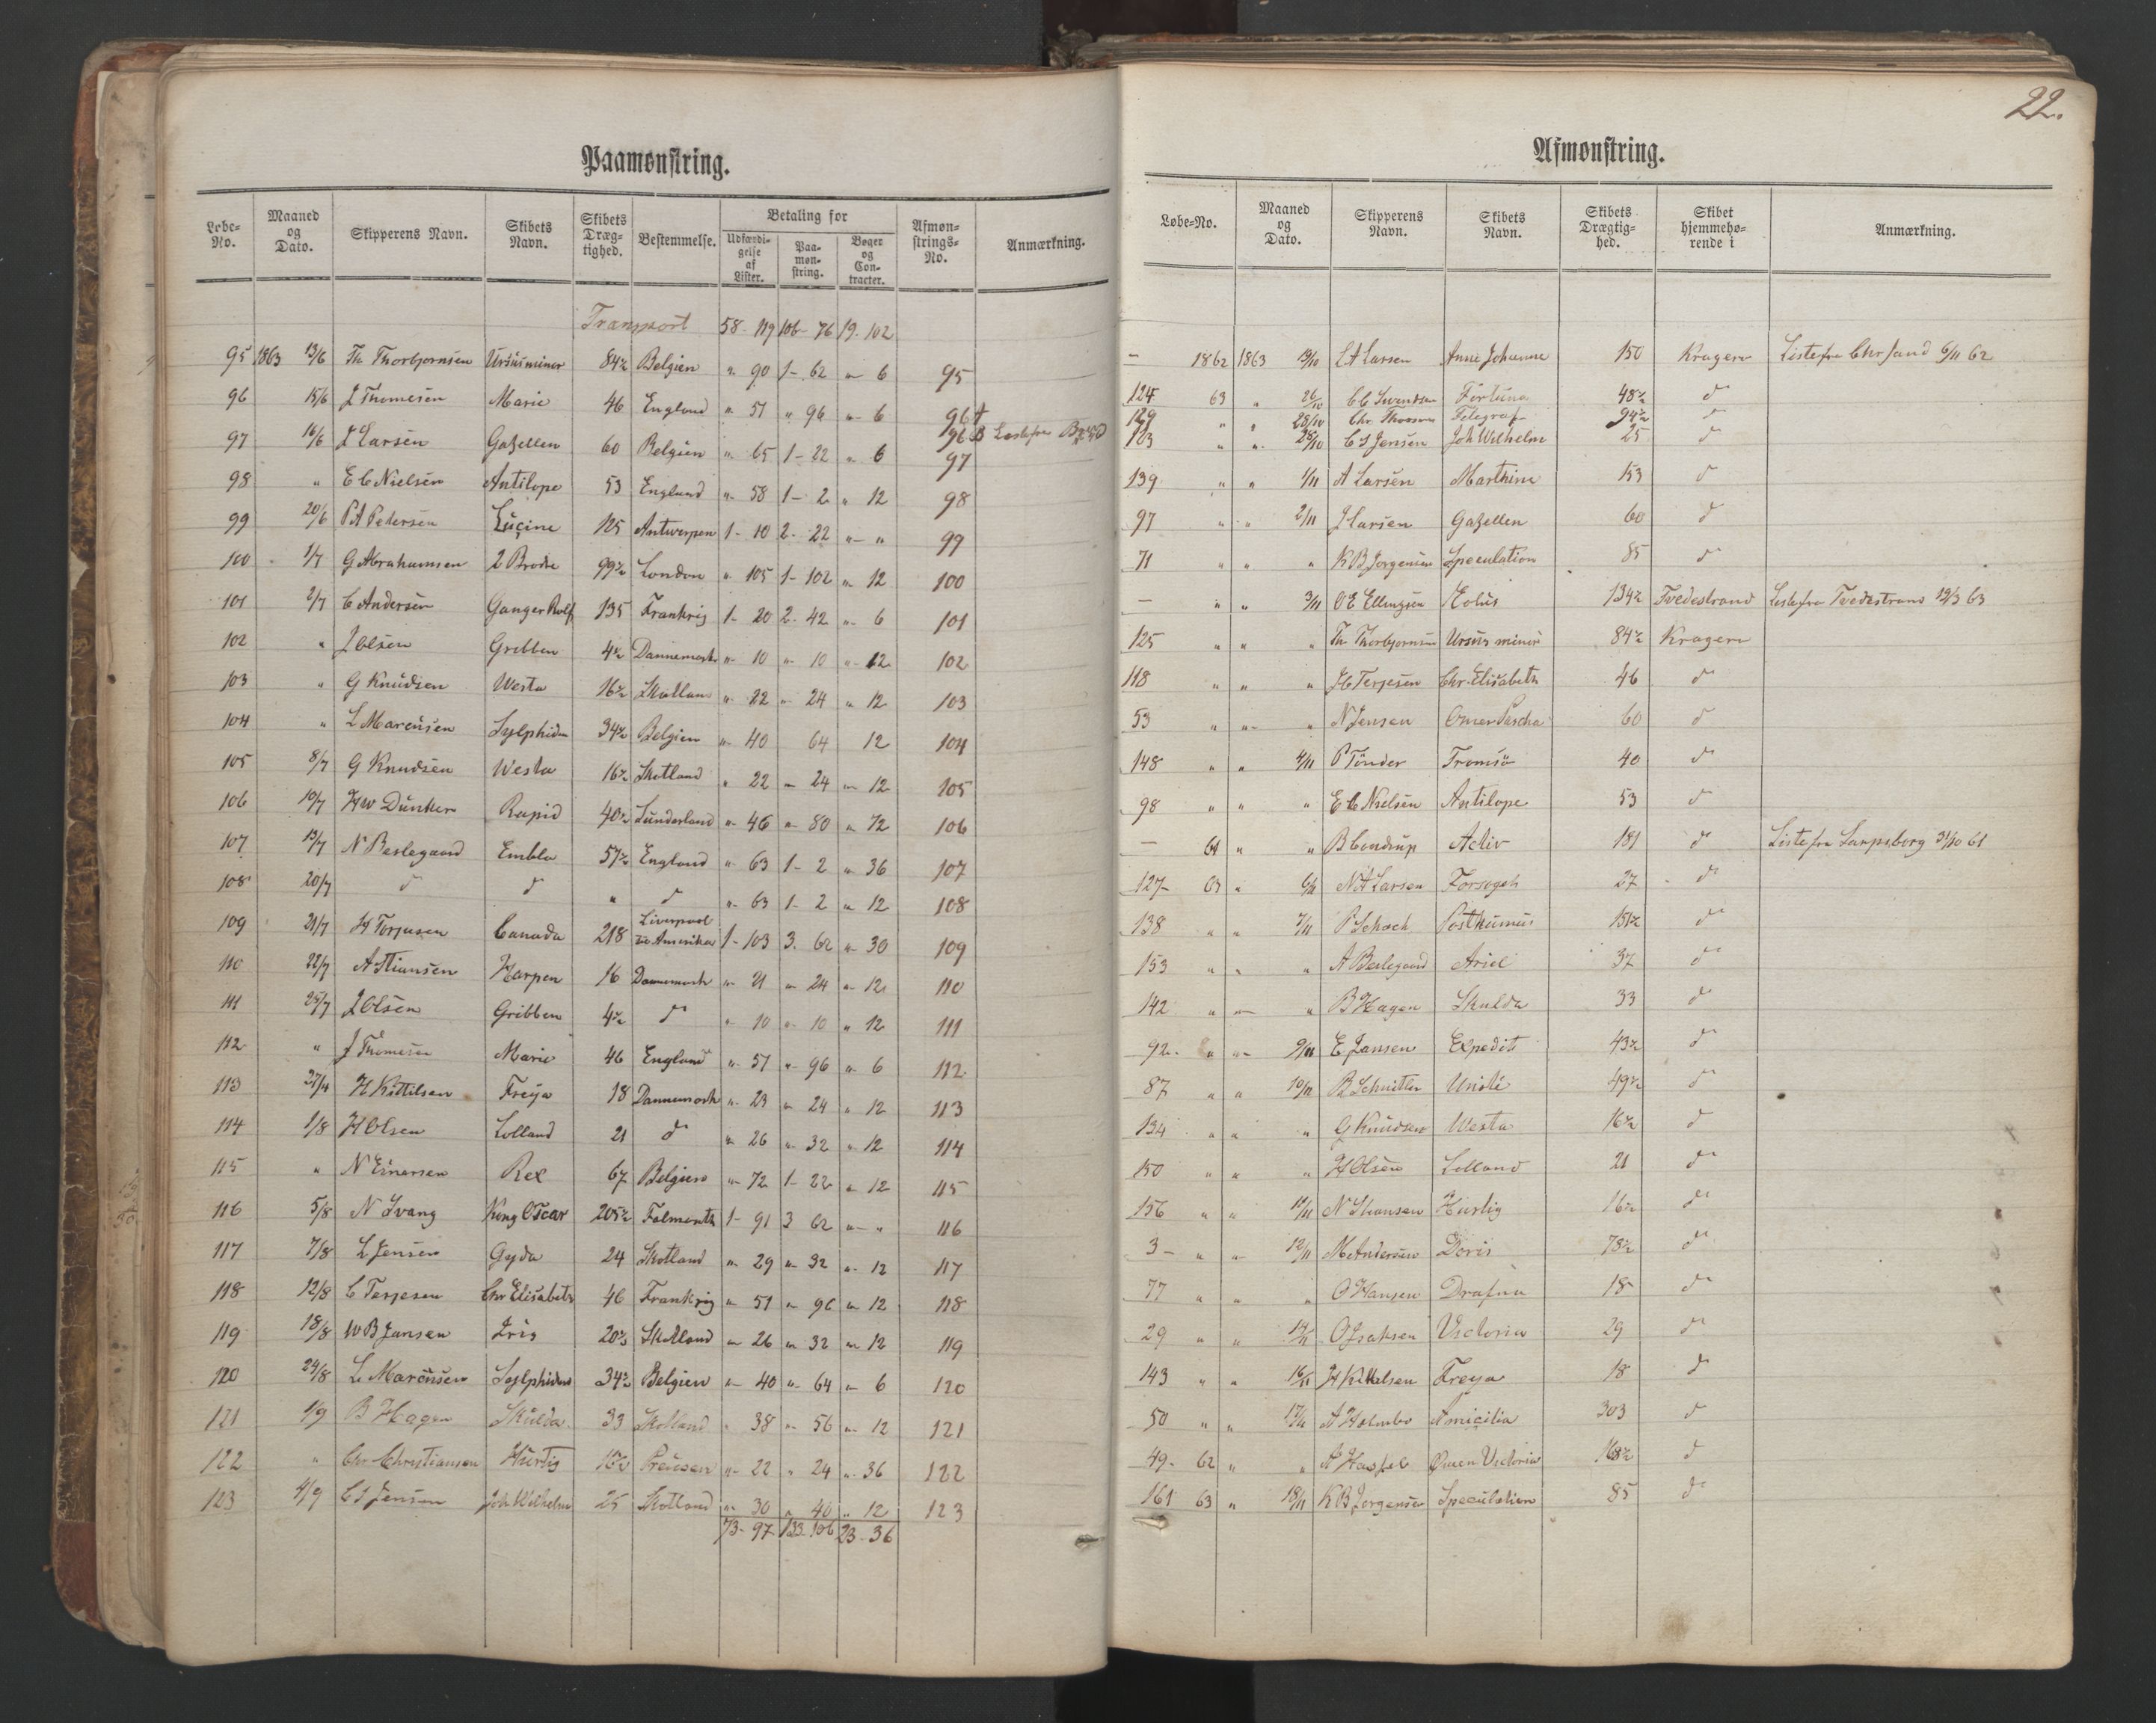 Paamønstring.
Løbe-No. Maaned og Dato. Skipperens Navn. Skibets Navn. Skibets Dræg-tighed. Bestemmelse. Betaling for Udfærdi-gelse af Lister. Paa-møn-string. Bøger og Con-tracter. Afmøn-strings-No. Anmærkning.
Transport 58 - 119 106 - 76 19 - 102
95 1863 13/6 Th Thorbjørnsen Ursus minor 84½ Belgien " 90 1 - 62 " 6 95
96 15/6 J Thomesen Marie 46 England " 51 " 96 " 6 96
97 16/6 J Larsen Gazellen 60 Belgien " 65 1 - 22 " 6 96 B Liste fra
97
98 " E C Nielsen Antilope 53 England " 58 1 - 2 " 12 98
99 20/6 P A Pedersen Lucine 125 Antwerpen 1 - 10 2 - 22 " " 99
100 1/7 G Abrahamsen 2 Brødre 99½ London " 105 1 - 102 " 12 100
101 2/7 C Andersen Ganger Rolf 135 Frankrig 1 - 20 2 - 42 " 6 101
102 " J Olsen Gribben 4½ Dannemark " 10 " 10 " 12 102
103 " G Knudsen Westa 16½ Skotland " 22 " 24 " 12 103
104 " L Marensen Sylphiden 34½ Belgien " 40 64 12 104
105 8/7 G Knudsen Westa 16½ Skotland " 22 " 24 " 12 105
106 10/7 H W Dunker Rapid 40½ Sunderland " 46 " 80 " 72 106
107 13/7 N Berlegaard Embla 57½ England " 63 1 - 2 " 36 107
108 20/7 d d " d " 63 1 - 2 " 12 108
109 21/7 H Torjusen Canada 218 Liverpool via Amerika 1 - 103 3 - 62 " 30 109
110 22/7 A Stiansen Harpen 16 Dannemark " 21 " 24 " 12 110
111 25/7 J Olsen Gribben 4½ d " 10 " 10 " 12 111
112 " J Thomesen Marie 46 England " 51 " 96 " 6 112
113 27/7 H Kittilsen Freya 18 Dannemark " 23 " 24 " 12 113
114 1/8 H Olsen Lolland 21 d " 26 " 32 " 12 114
115 " N Einersen Rex 67 Belgien " 72 1 - 22 " 12 115
116 5/8 N Svang Kong Oscar 205½ Falmouth 1 - 91 3 62 " " 116
117 7/8 L Jensen Gyda 24 Skotland " 29 " 32 " 12 117
118 12/8 C Terjesen Chr Elisabeth 46 Frankrig " 51 " 96 " 12 118
119 18/8 W B Jansen Iris 20½ Skotland " 26 " 32 " 12 119
120 24/8 L Marensen Sylphiden 34½ Belgien " 40 " 64 " 6 120
121 1/9 B Hagen Skulda 33 Skotland " 38 " 56 " 12 121
122 " Chr Christiansen Hurtig 16½ Preusen " 22 " 24 " 36 122
123 4/9 C S Jensen Joh Wilhelm 25 Skotland " 30 " 40 " 12 123
73 - 97 133 - 106 23 - 36
22.
Afmønstring.
Løbe-No. Maaned og Dato. Skipperens Navn. Skibets Navn. Skibets Drægtig-hed. Skibet hjemmehø-rende i Anmærkning.
— 1862 1863 19/10 L A Larsen Anne Johanne 150 Kragerø Liste fra Chrsand 6/11 62
124 63 " 26/10 C C Svendsen Fortuna 48½ d
129 " " 28/10 Chr. Thorsen Telegraf 94½ d
123 " " 28/10 C S Jensen Joh Wilhelm 25 d
139 " " 1/11 A Larsen Marthine 153 d
97 " " 2/11 J Larsen Gazellen 60 d
71 " " " K B Jørgensen Speculation 85 d
— " " 3/11 O E Ellingsen Eolus 134½ Tvedestrand Liste fra Tvedestrand 19/3 63
125 " " " Th Thorbjørnsen Ursus minor 84½ Kragerø
118 " " " J C Terjesen Chr. Elisabeth 46 d
53 " " " N Jensen Omer Pascha 60 d
148 " " 4/11 P Tönder Tromsö 40 d
98 " " " E C Nielsen Antilope 53 d
— 61 " " B Condrup Activ 181 d Liste fra Sarpsborg 31/10 61
127 63 " 6/11 N A Larsen Forsøget 27 d
138 " " 7/11 P Schach Posthumus 151½ d
153 " " " A Berlegaard Ariel 37 d
142 " " " B Hagen Skulda 33 d
92 " " 9/11 E Jansen Expedit 43½ d
87 " " 10/11 B Schnitler Unité 49½ d
134 " " " G Knudsen Westa 16½ d
150 " " " H Olsen Lolland 21 d
156 " " 11/11 N Stiansen Hurtig 16½ d
3 " " 12/11 M Andersen Doris 73½ d
77 " " " O Hansen Drafna 18 d
29 " " 14/11 O Isaksen Victoria 29 d
143 " " 16/11 H Kittelsen Freya 18 d
50 " " 17/11 A Holmbo Amicitia 303 d
49 62 " " A Hassel Queen Victoria 168½ d
161 63 " 18/11 K B Jørgensen Speculation 85 d